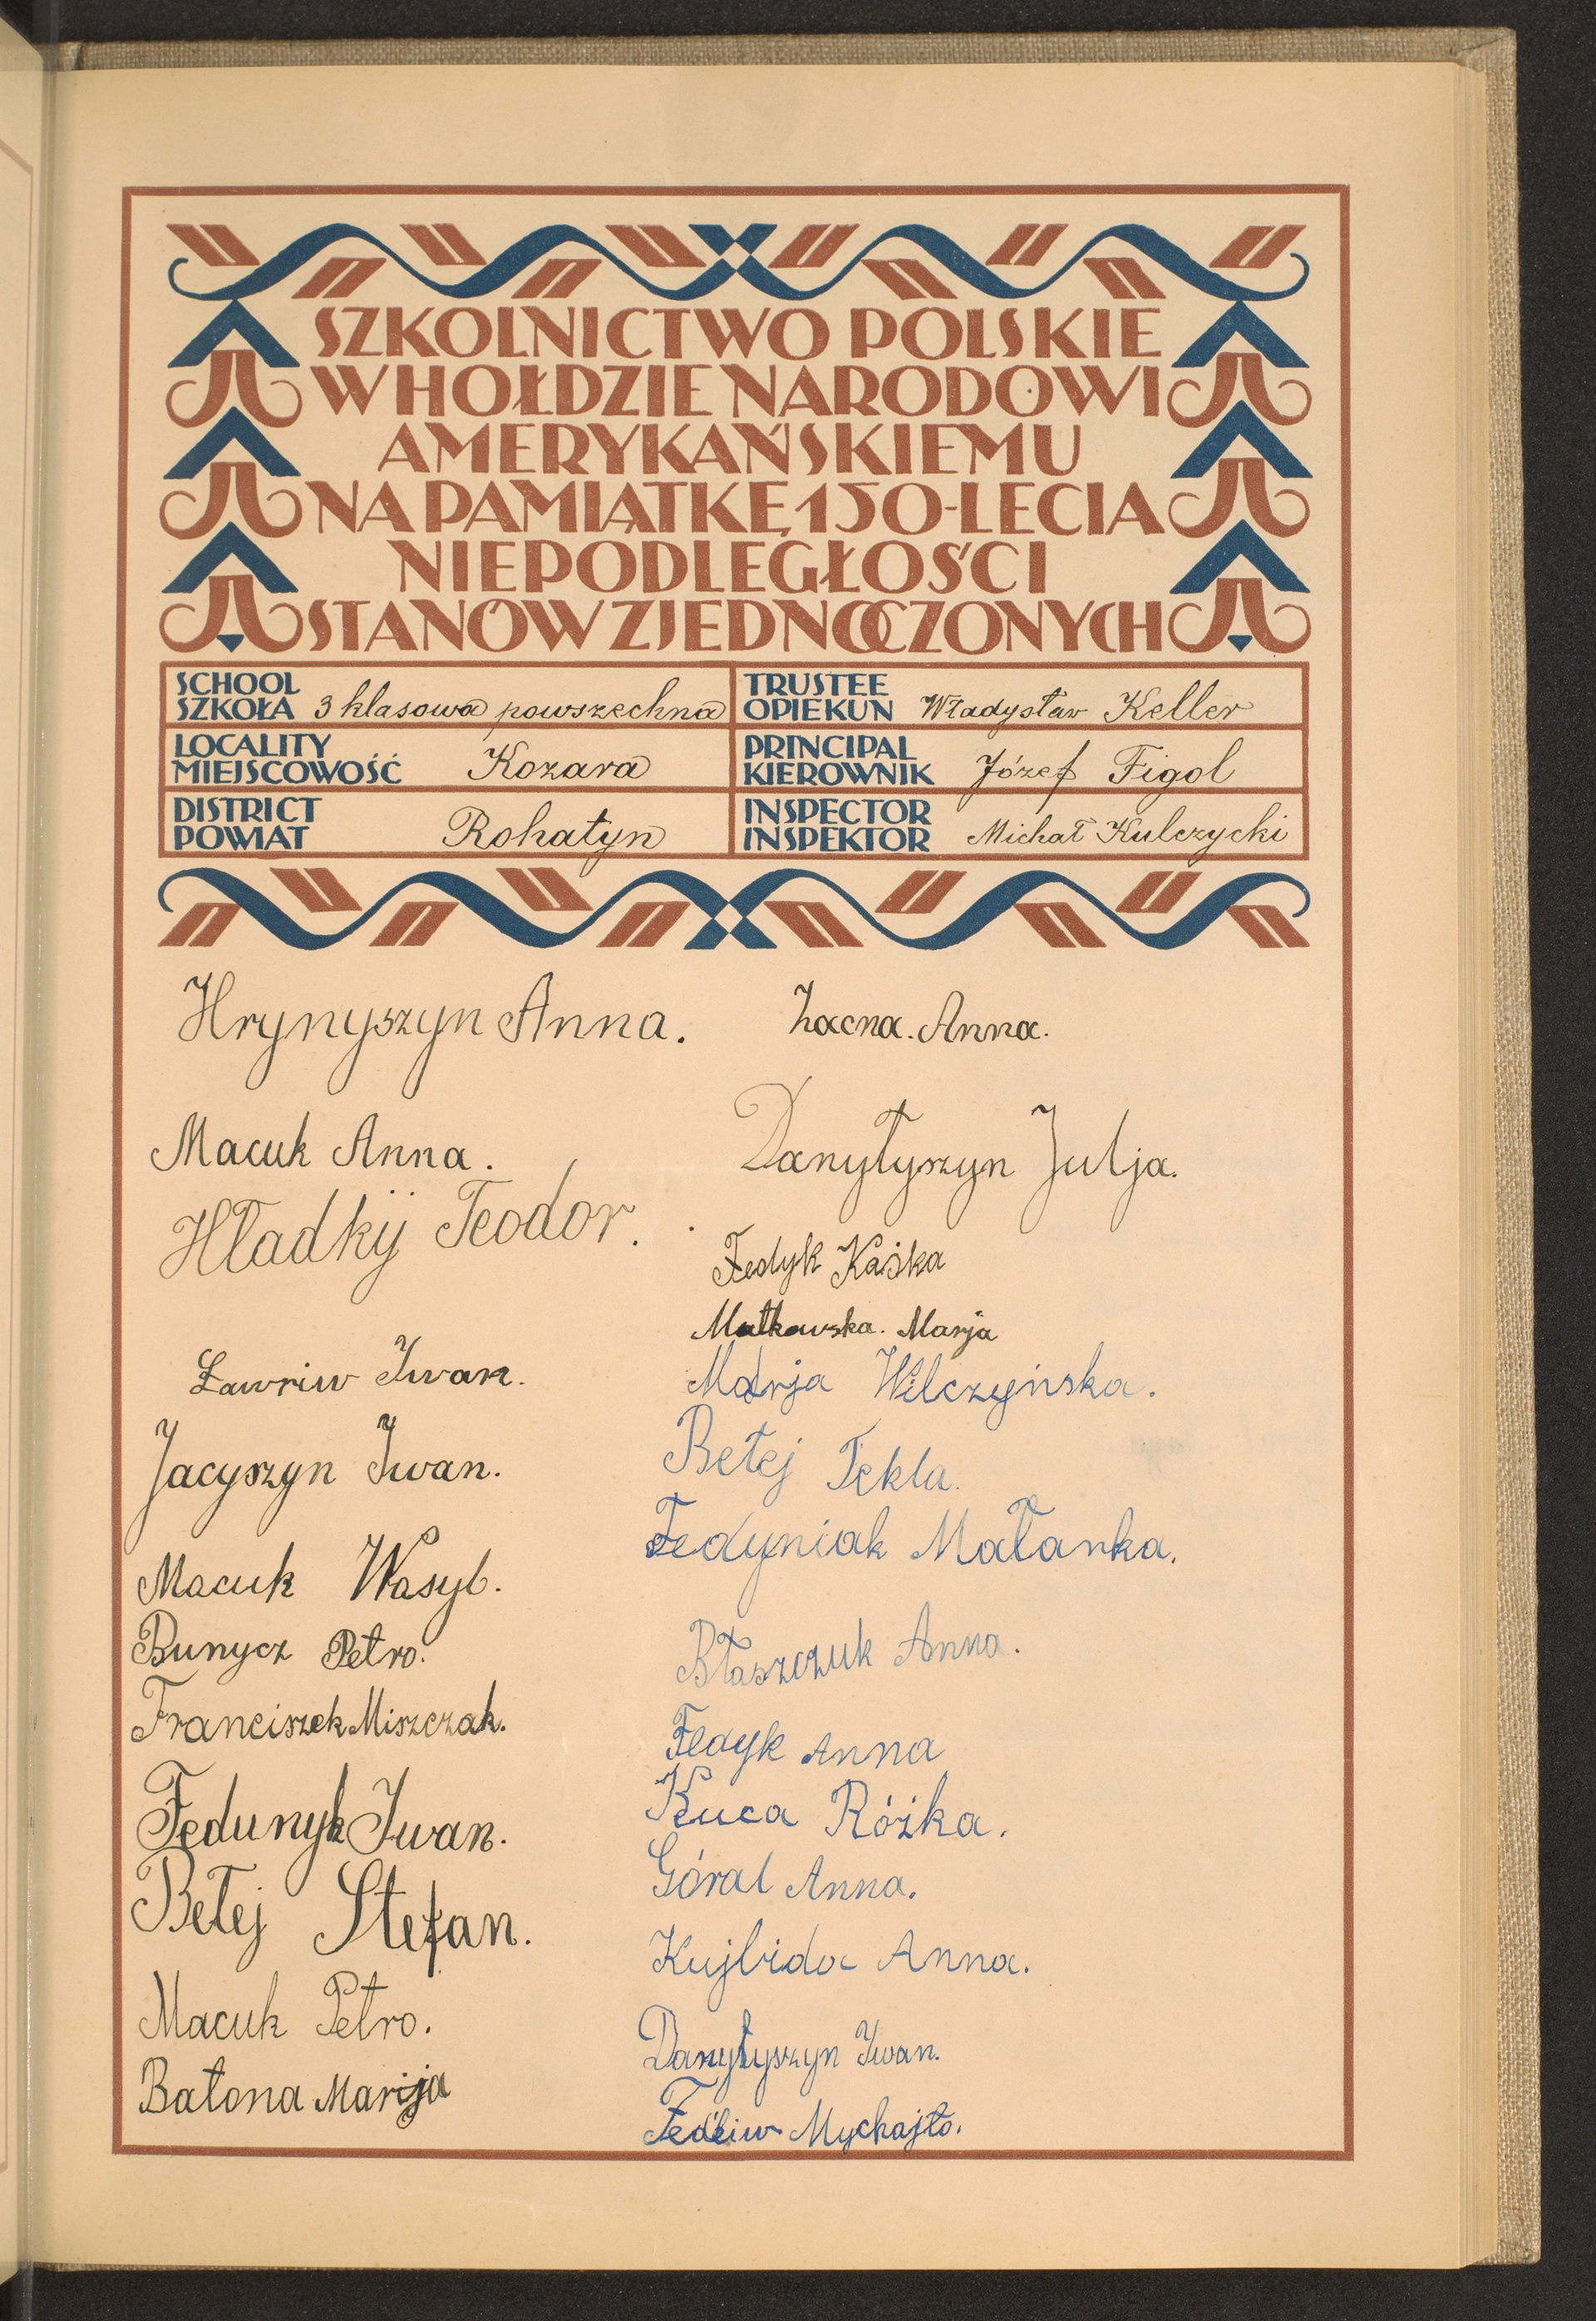 SZKOLNICTWO POLSKIE
W HOŁDZIE NARODOWI
AMERYKAŃSKIEMU
NA PAMIĄTKĘ 150-LECIA
NIEPODLEGŁOŚCI
STANÓW ZJEDNOCZONYCH
SCHOOL
SZKOŁA 3 klasowa powszechna
TRUSTEE
OPIEKUN Władysław Keller
LOCALITY
MIEJSCOWOŚĆ Kozara
PRINCIPAL
KIEROWNIK Józef Figol
DISTRICT
POWIAT Rohatyn
INSPECTOR
INSPEKTOR Michał Kulczycki
Hrynyszyn Anna.
Macuk Anna.
Hładkij Teodor.
Ławriw Iwan.
Jacyszyn Iwan.
Macuk Wasyl.
Bunycz Petro.
Franciszek Miszczak.
Fedunyk Iwan.
Bełej Stefan.
Macuk Petro.
Bałona Marija
Zacna. Anna.
Danyłyszyn Julja.
Fedyk Kaśka
Małkowska. Marja
Marja Wilczyńska.
Bełej Tekla.
Fedyniak Małanka.
Błaszczuk Anna.
Fedyk Anna
Kuca Różka.
Góral Anna.
Kujbida Anna.
Danyłyszyn Iwan.
Mychajło.